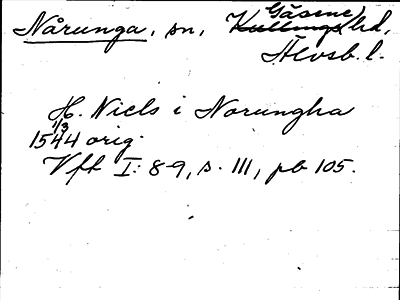 Nårunga, sn, Gäsene hd,
Älvsb. l.
H. Niels i Norungha
1/3
1544 orig.
Vft I: 8-9, s. 111, pb 105.